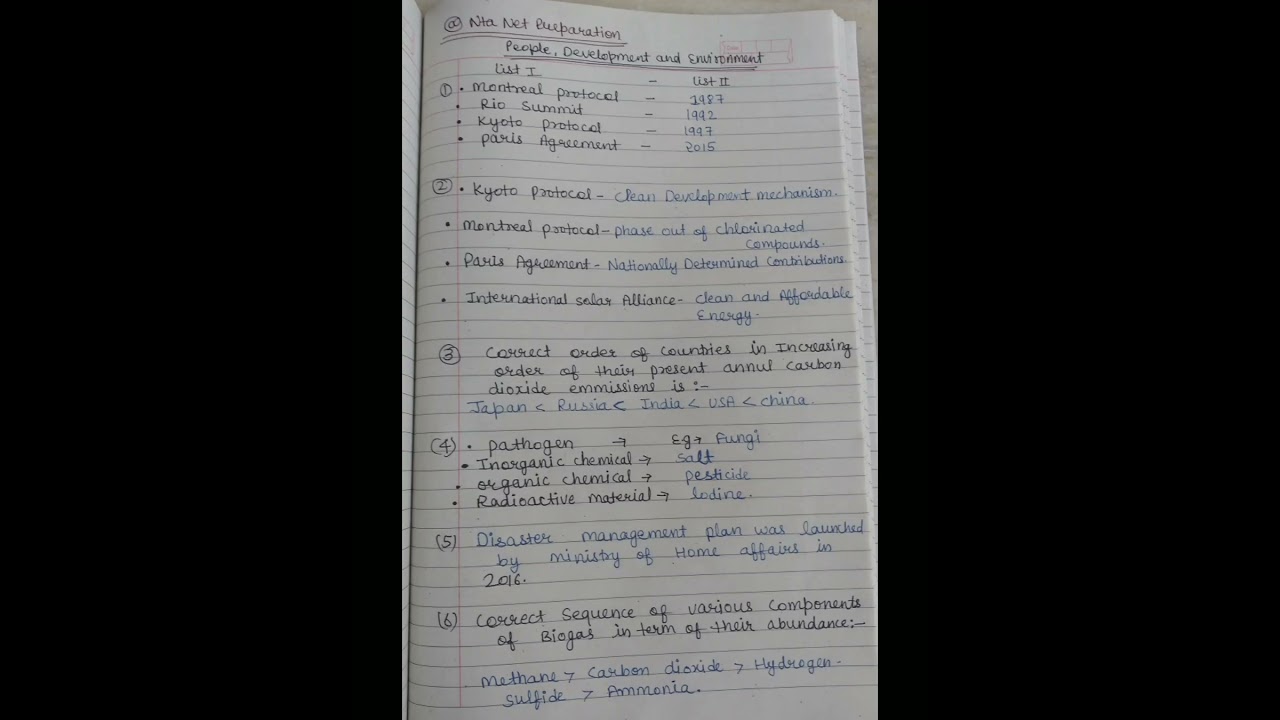 @ Nta Net Preparation
People, Development and Environment
List I - List II
① • Montreal protocol - 1987
• Rio Summit - 1992
• Kyoto protocol - 1997
• Paris Agreement - 2015
② • Kyoto protocol - Clean Development mechanism.
• Montreal protocol - phase out of chlorinated
Compounds.
• Paris Agreement - Nationally Determined Contributions.
• International Solar Alliance - Clean and Affordable
Energy.
③ Correct order of Countries in Increasing
order of their present annul carbon
dioxide emmissions is :-
Japan < Russia < India < USA < China.
(4) • pathogen → Eg → Fungi
• Inorganic chemical → Salt
• organic chemical → pesticide
• Radioactive material → Iodine.
(5) Disaster management plan was launched
by ministry of Home affairs in
2016.
(6) Correct Sequence of various Components
of Biogas in term of their abundance:-
Methane > Carbon dioxide > Hydrogen-
Sulfide > Ammonia.